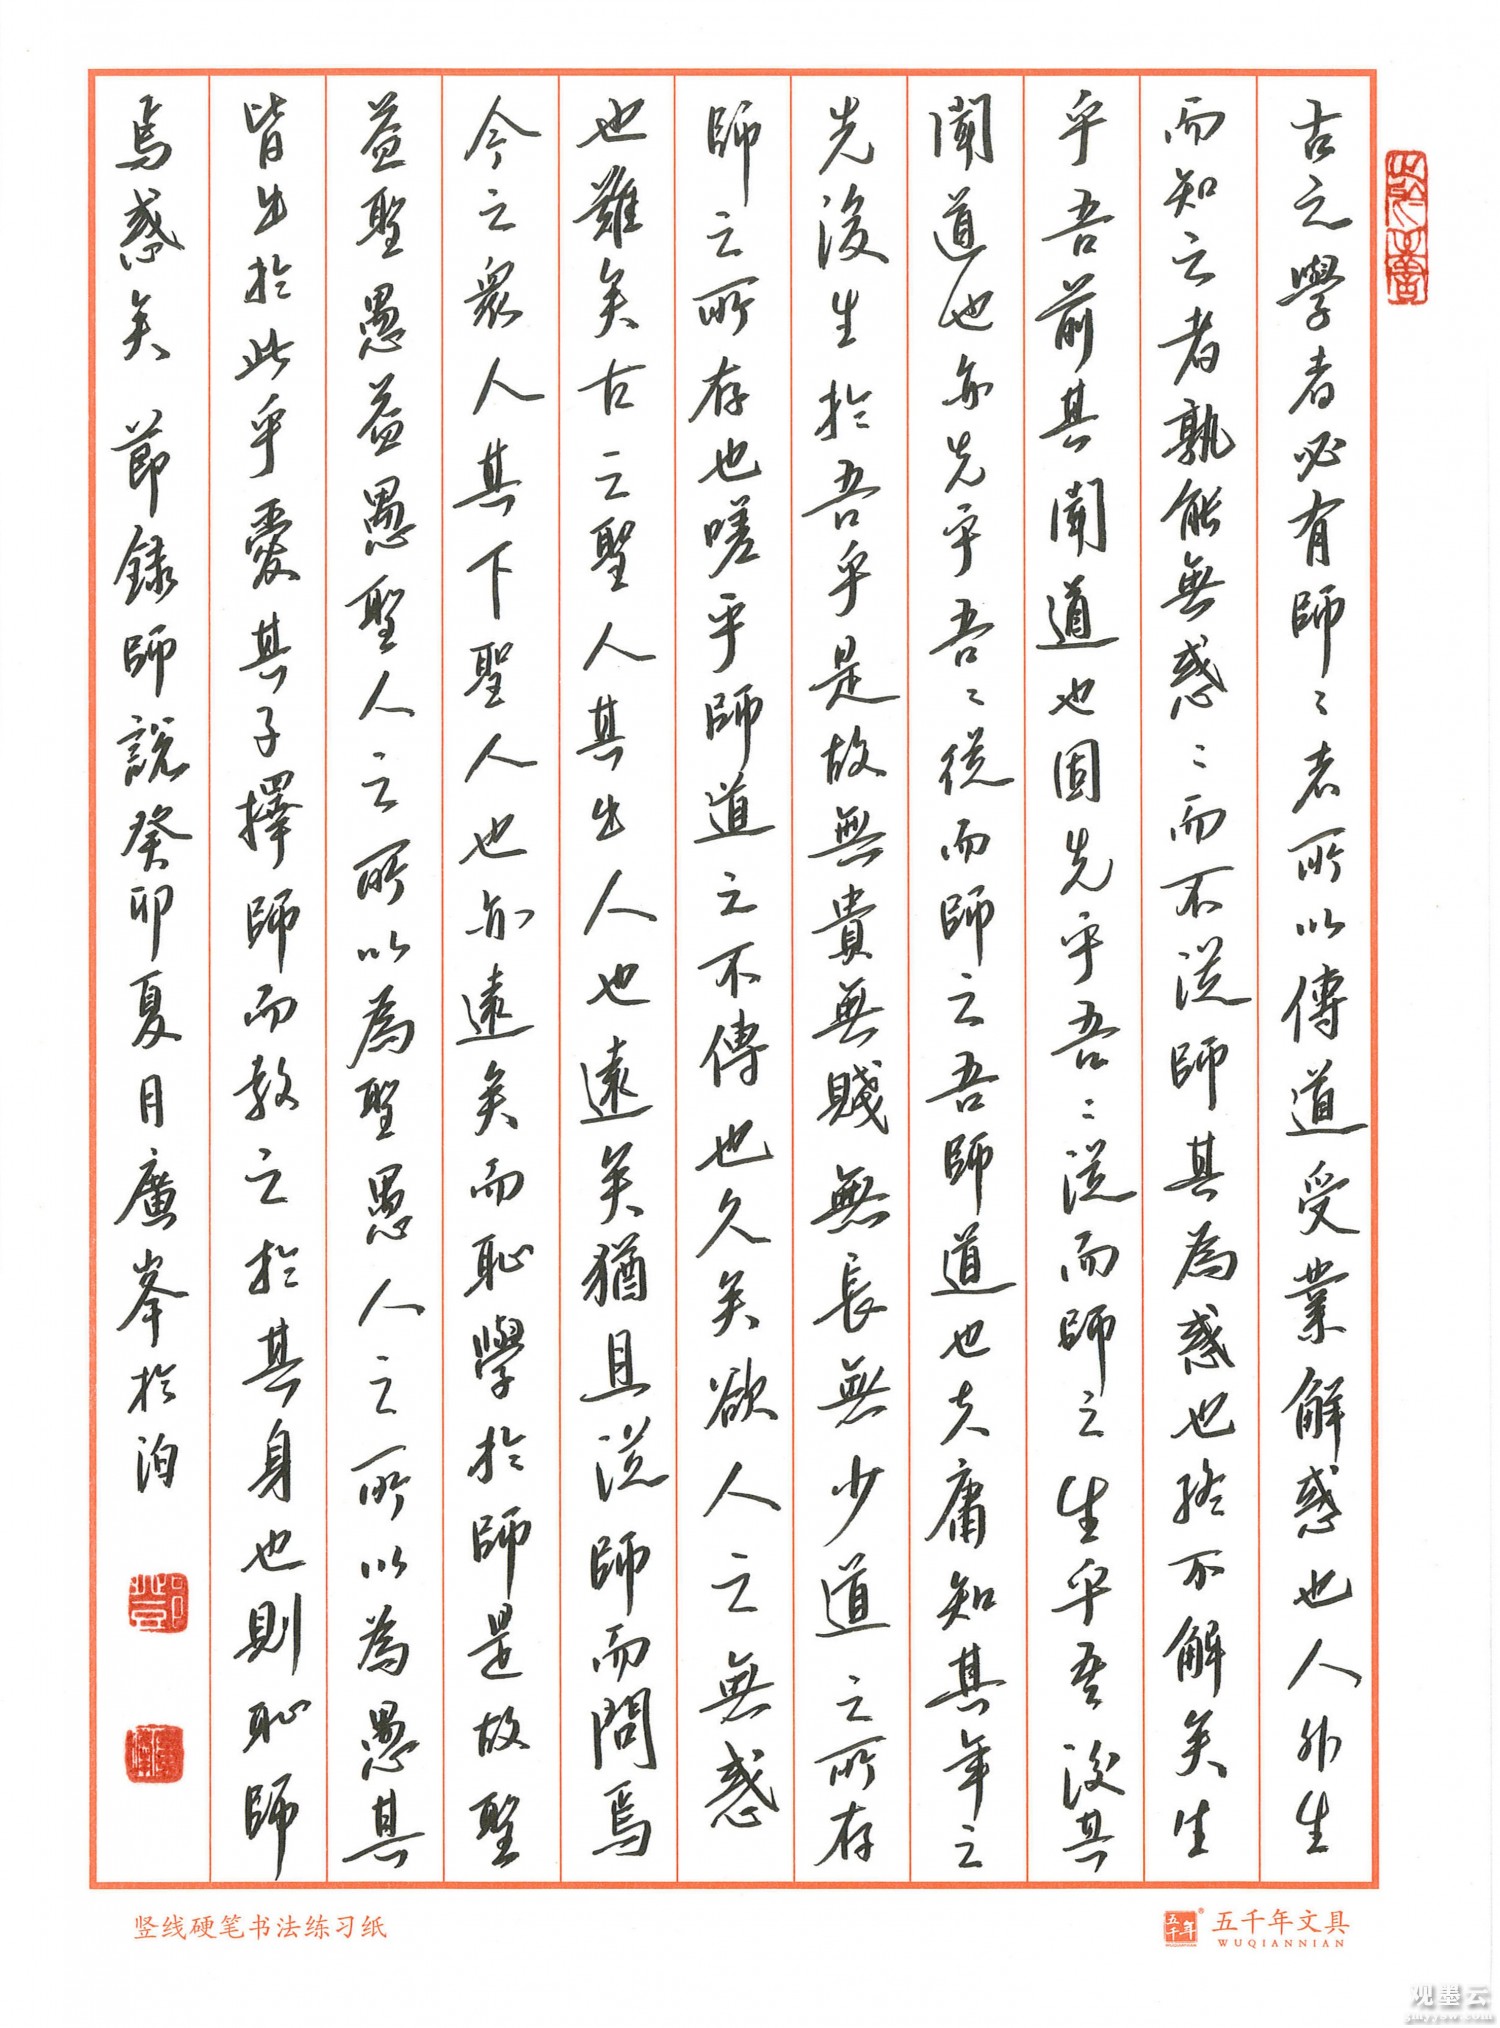 古之學者必有師〻者所以傳道受業解惑也人非生
而知之者孰能無惑〻而不從師其為惑也終不解矣生
乎吾前其聞道也固先乎吾〻從而師之生乎吾後其
聞道也亦先乎吾〻從而師之吾師道也夫庸知其年之
先後生於吾乎是故無貴無賤無長無少道之所存
師之所存也嗟乎師道之不傳也久矣欲人之無惑
也難矣古之聖人其出人也遠矣猶且從師而問焉
今之衆人其下聖人也亦遠矣而恥學於師是故聖
益聖愚益愚聖人之所以為聖愚人之所以為愚其
皆出於此乎愛其子擇師而教之於其身也則恥師
焉惑矣 節録師說癸卯夏月廣峯於泊
竖线硬笔书法练习纸
五千年 五千年文具
WUQIANNIAN
观墨云